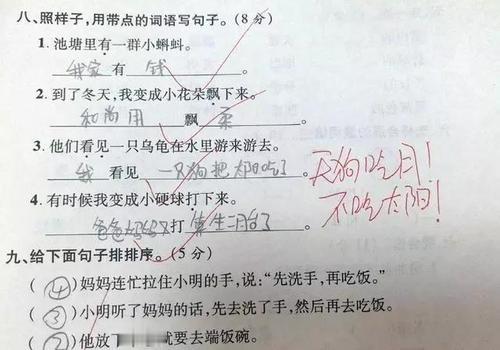 八、照样子,用带点的词语写句子。(8分)
1. 池塘里有一群小蝌蚪。
我家 有 钱 。
2. 到了冬天,我变成小花朵飘下来。
和尚用 飘 柔 。
3. 他们看见一只乌龟在水里游来游去。
我 看见 一只狗把太阳吃了 。
天狗吃月!
不吃太阳!
4. 有时候我变成小硬球打下来。
爸爸妈妈又打 算生二月台了 。
九、给下面句子排排序。(5分)
(④)妈妈连忙拉住小明的手,说:“先洗手,再吃饭。”
(③)小明听了妈妈的话,先去洗了手,然后再去吃饭。
(②)他放 就要去端饭碗。